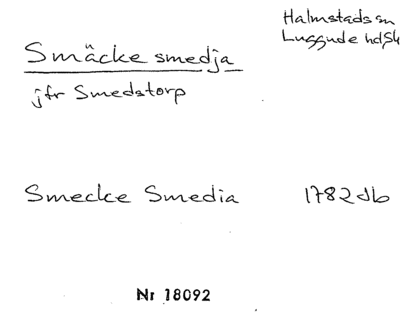 Halmstads sn
Luggude hd Sk
Smäcke smedja
jfr Smedstorp
Smecke Smedia 1782 db
Nr 18092